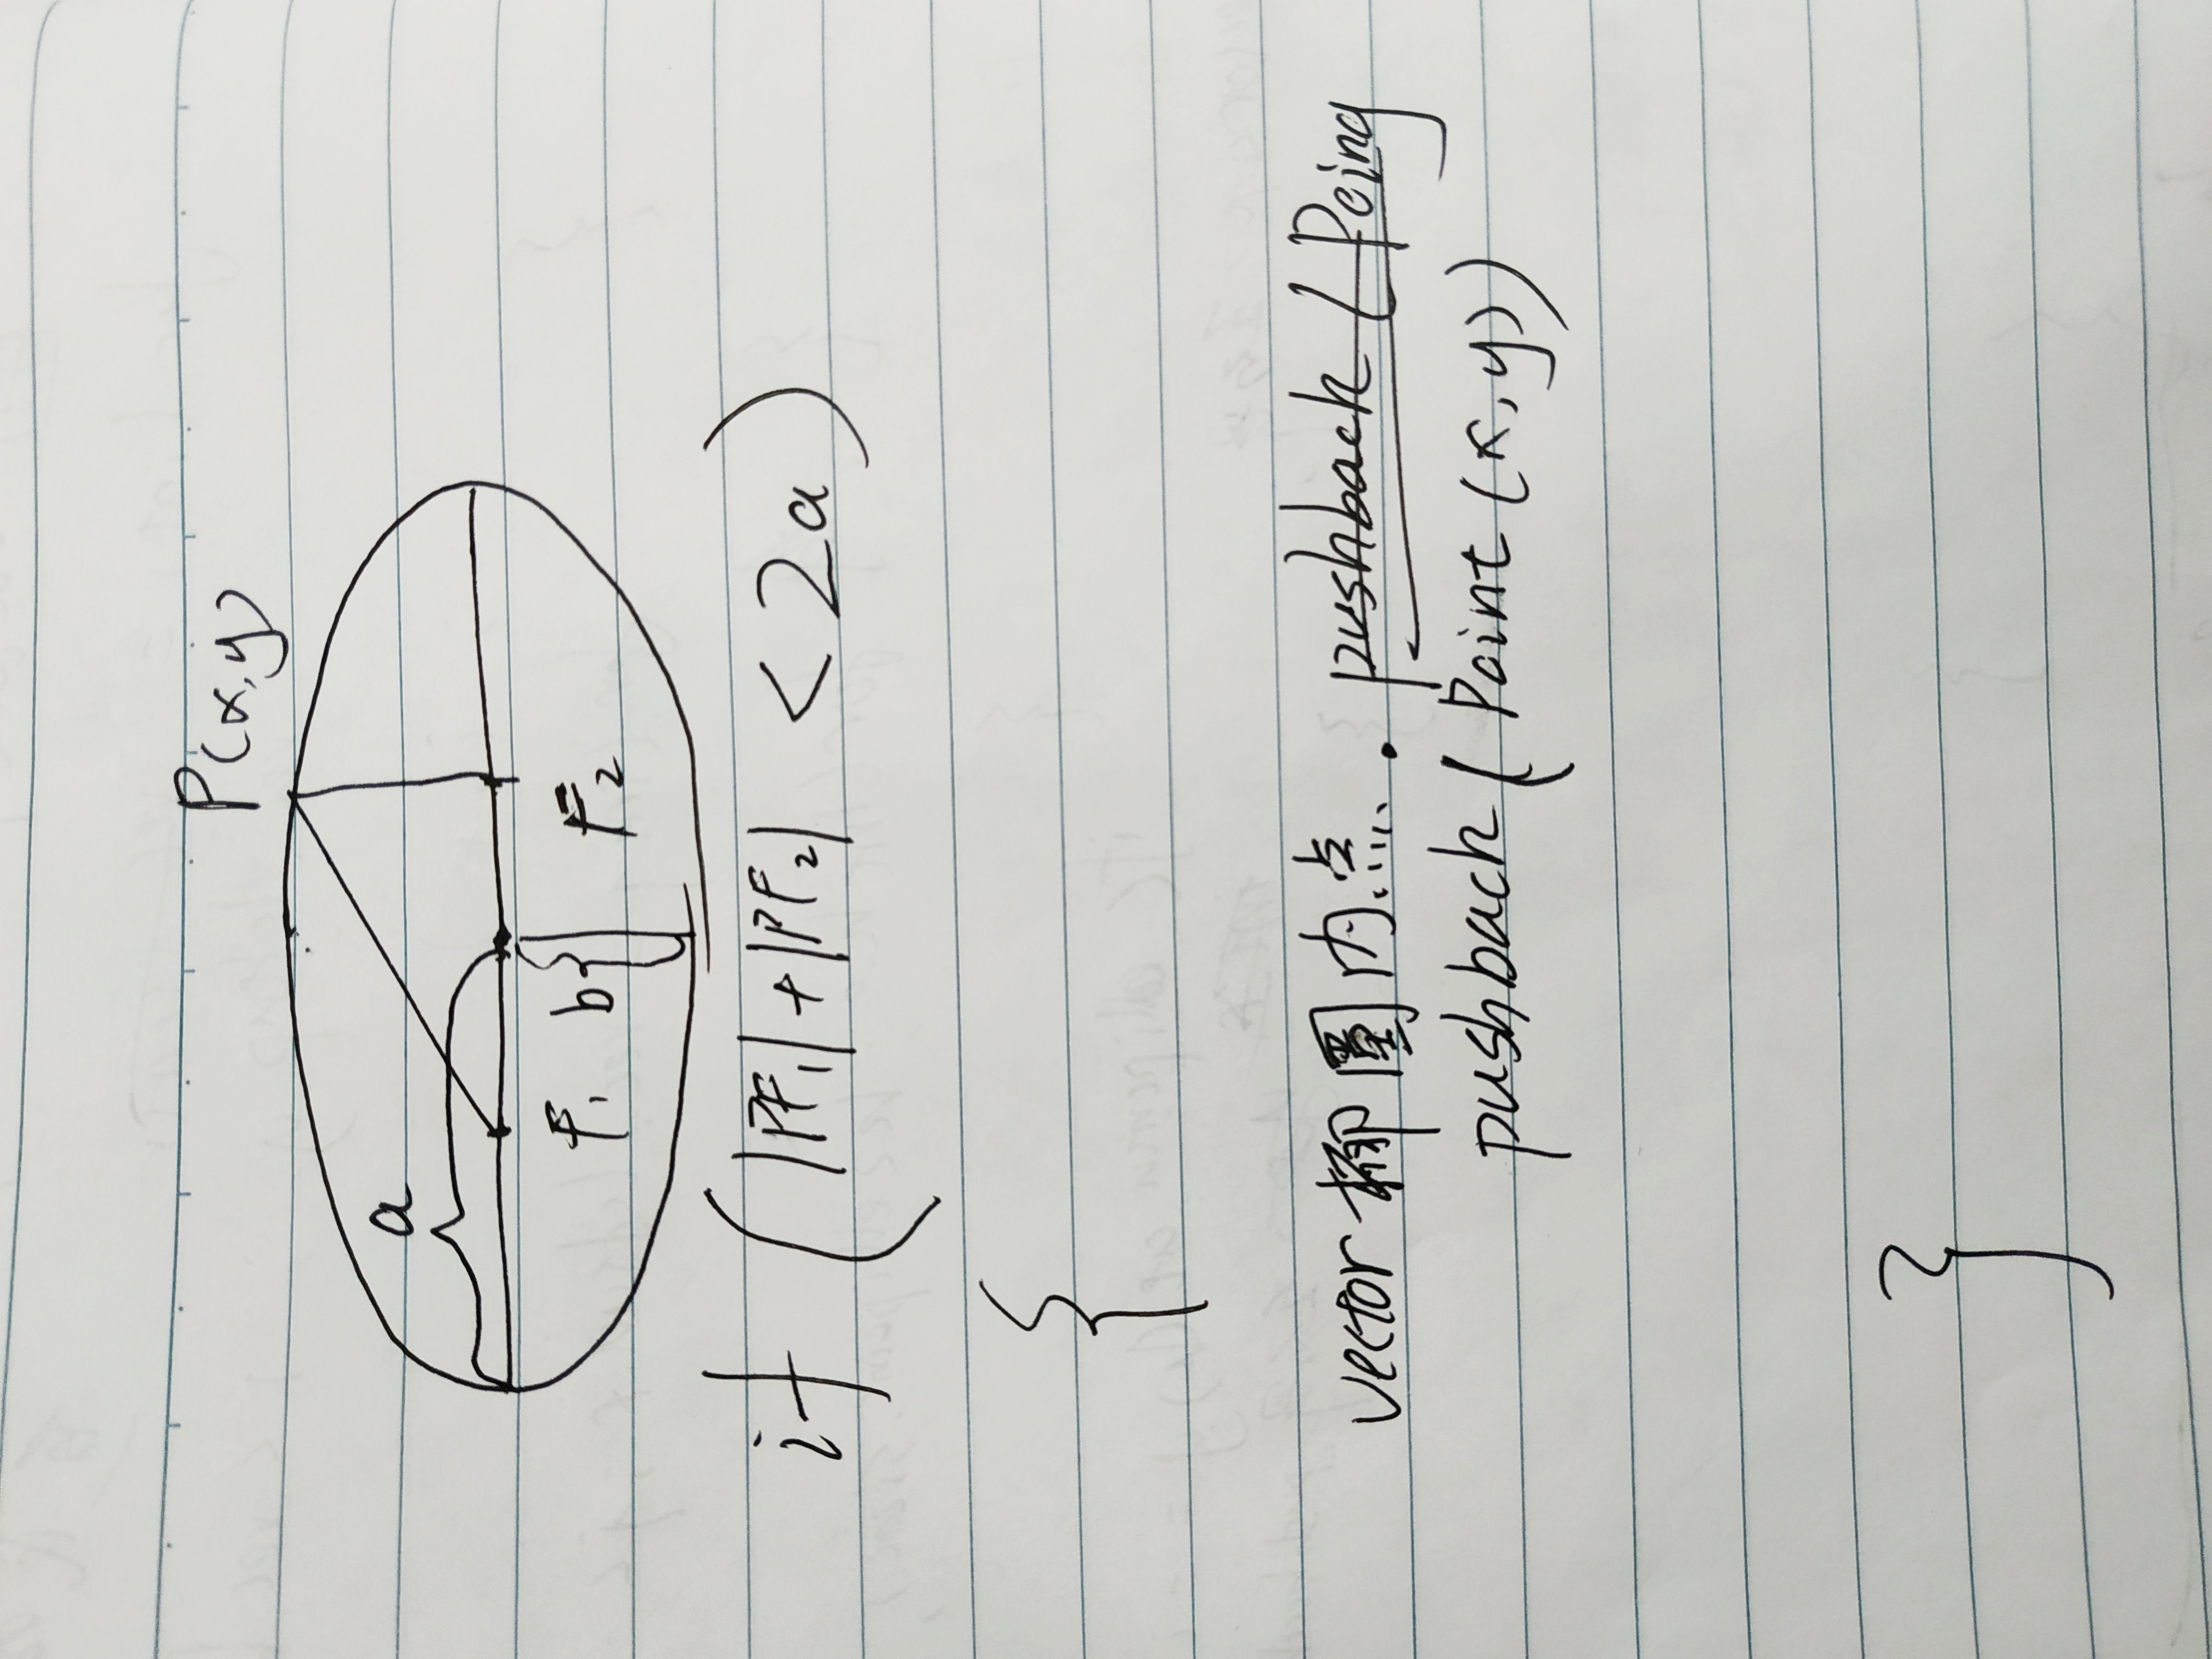 P(x,y)
a
F₁ b F₂
if ( |PF₁| + |PF₂| < 2a )
{
vector 椭圆内点. pushback ( Poing
pushbach ( Point (x,y))
}